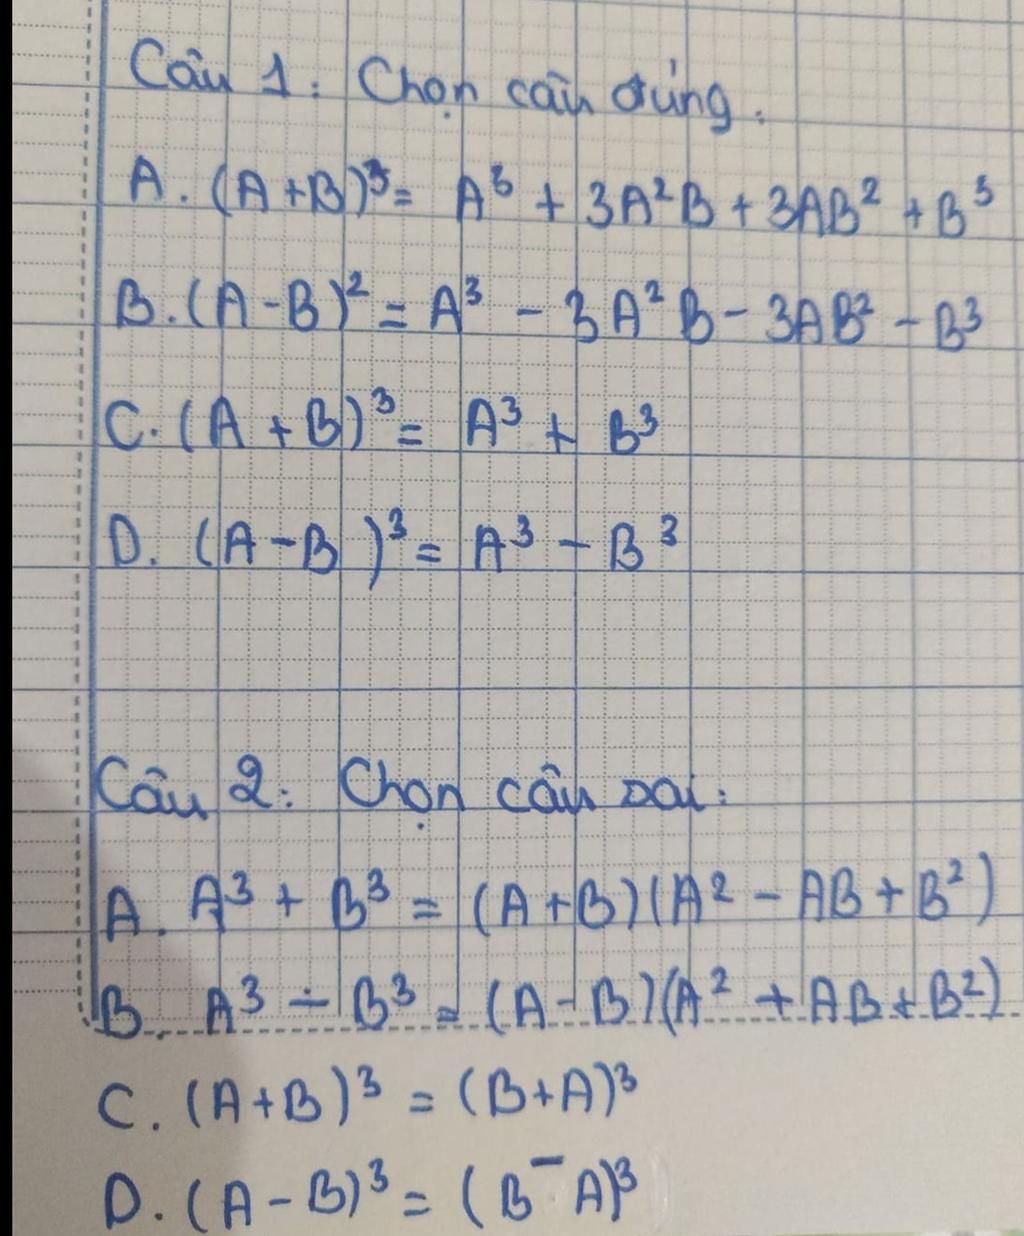 Câu 1: Chọn câu đúng.
A. (A+B)³ = A³ + 3A²B + 3AB² + B³
B. (A-B)² = A³ - 3A²B - 3AB² - B³
C. (A+B)³ = A³ + B³
D. (A-B)³ = A³ - B³
Câu 2: Chọn câu sai:
A. A³ + B³ = (A+B)(A² - AB + B²)
B. A³ - B³ = (A-B)(A² + AB + B²)
C. (A+B)³ = (B+A)³
D. (A-B)³ = (B-A)³